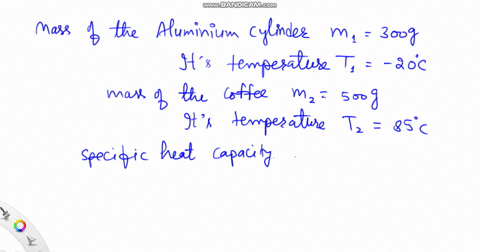 WWW.BANDICAM.COM
Mass of the Aluminium Cylinder m₁ = 300g
It's temperature T₁ = -20°C
mass of the coffee m₂ = 500g
It's temperature T₂ = 85°C
specific heat capacity